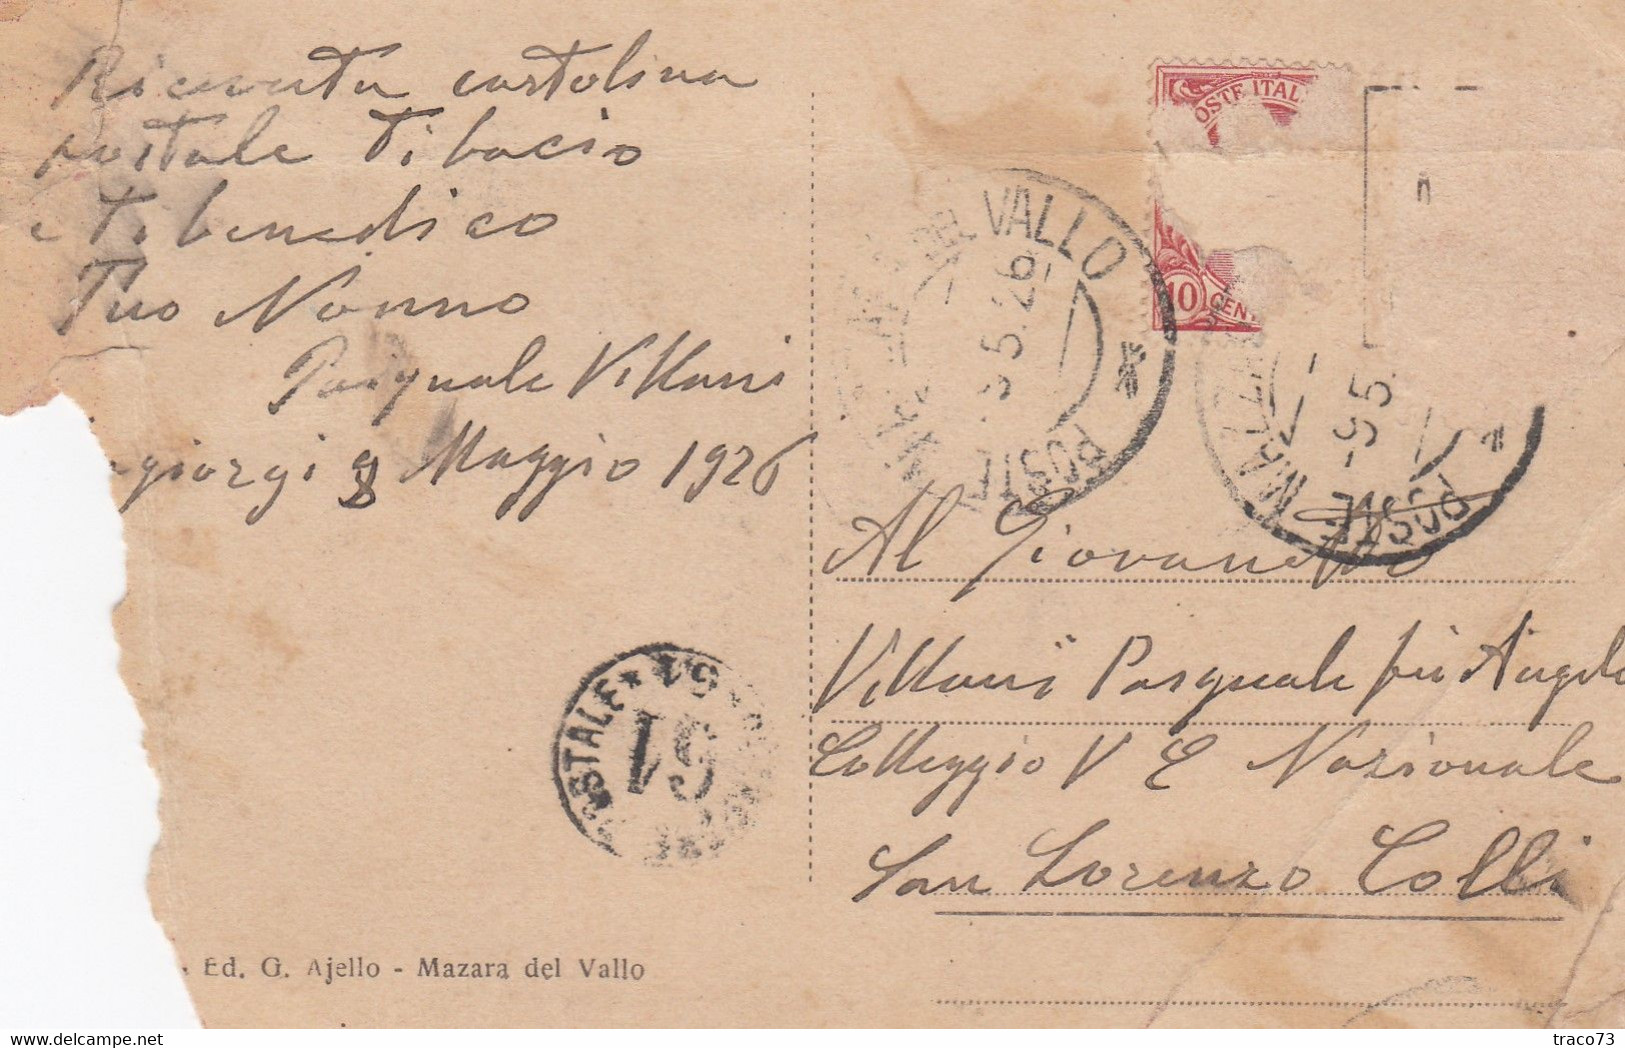 Ricevuta cartolina
postale ti bacio
e ti benedico
Tuo Nonno
Pasquale Villani
giorgi 8 Maggio 1926
OSTE ITAL
10 CENT
DEL VALLO
5.26
POSTE
MAZZA
-9 5.
POSTE
Al Giovanetto
Villani Pasquale fu Angelo
Colleggio V E Nazionale
San Lorenzo Colli
STALE
51
Ed. G. Ajello - Mazara del Vallo
traco73